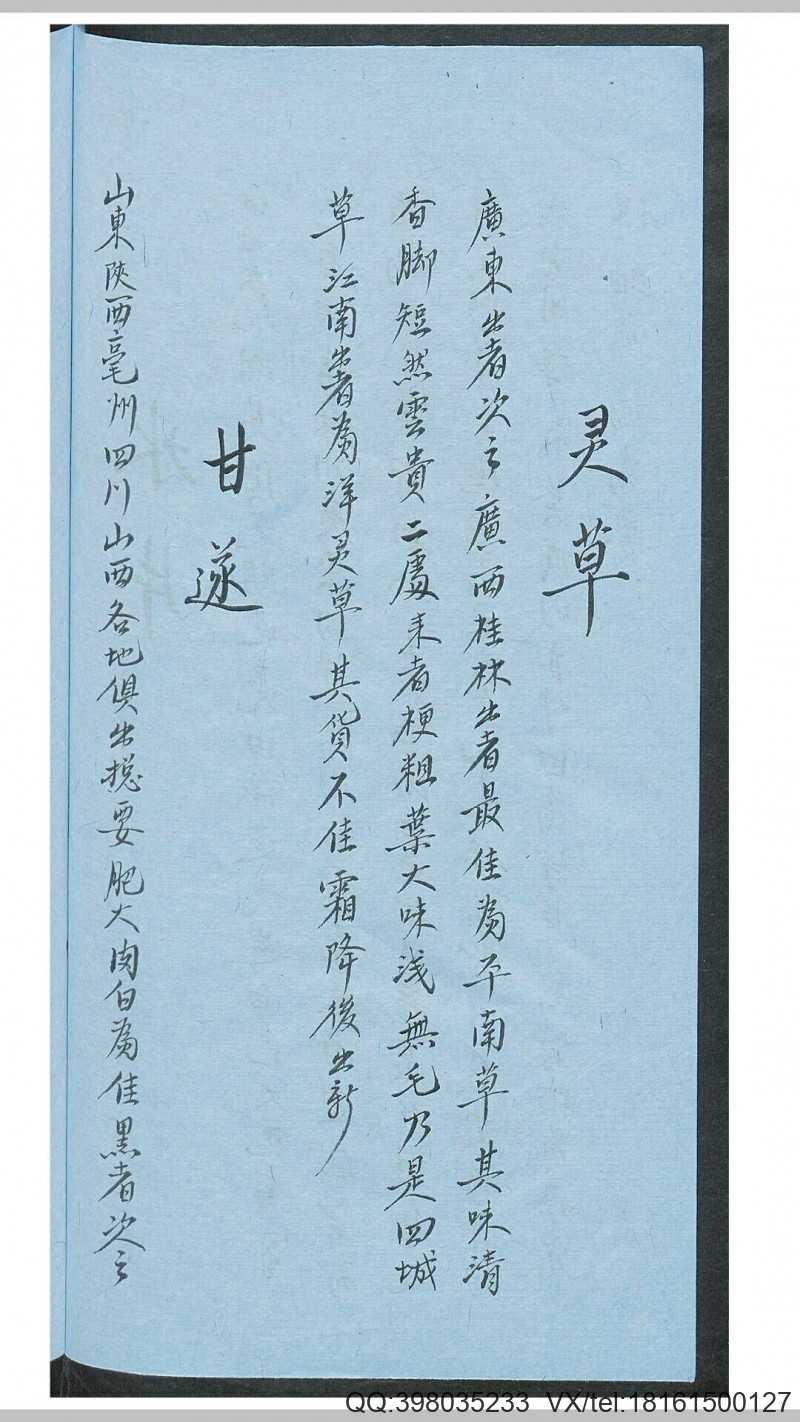 灵草
廣東出者次之廣西桂林出者最佳為平南草其味清
香脚短然雲貴二處来者梗粗葉大味浅無毛乃是四城
草江南出者為洋灵草其貨不佳霜降後出新
甘遂
山東陝西亳州四川山西各地俱出揔要肥大肉白為佳黑者次之
QQ:398035233  VX/tel:18161500127